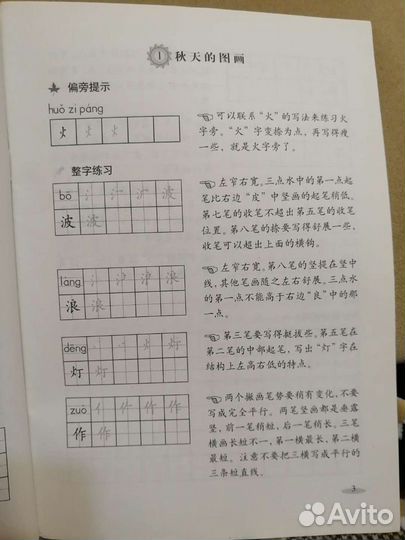 1 秋天的图画
偏旁提示
huǒ zì páng
火 火 火
可以联系“火”的写法来练习火
字旁。“火”字变捺为点，再写得瘦
一些，就是火字旁了。
整字练习
bō
波
波
左窄右宽。三点水中的第一点起
笔比右边“皮”中竖画的起笔稍低。
第七笔的收笔不超出第五笔的收笔
位置。第八笔的捺要写得舒展一些，
收笔可以超出上面的横钩。
làng
浪
浪
左窄右宽。第八笔的竖提在竖中
线，其他笔画随之左右舒展。三点水
的第一点不能高于右边“良”中的那
一点。
dēng
灯
灯
第三笔要写得挺拔些。第五笔在
第二笔的中部起笔，写出“灯”字在
结构上左高右低的特点。
zuò
作 作 作
作 作
两个撇画笔势要稍有变化，不要
写成完全平行。两笔竖画都是垂露
竖，前一笔稍短，后一笔稍长。三笔
横画长短不一，第一横最长，第二横
最短。注意不要把三横写成平行的
三条短直线。
3
Avito